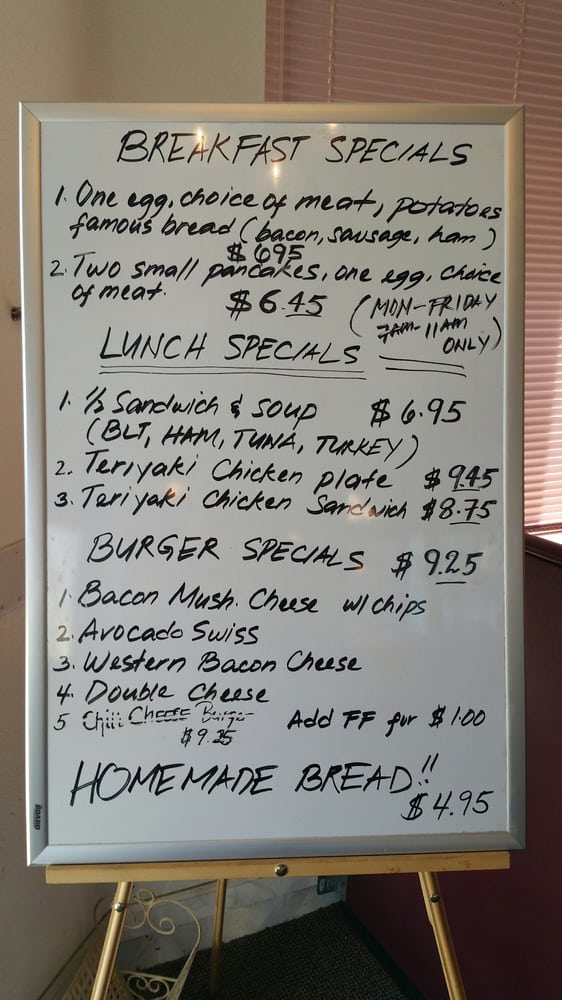 BREAKFAST SPECIALS
1. One egg, choice of meat, potatoes
famous bread (bacon, sausage, ham)
$ 695
2. Two small pancakes, one egg, choice
of meat. $6.45 (MON-FRIDAY
7AM-11AM
ONLY)
LUNCH SPECIALS
1. 1/2 Sandwich & soup $6.95
(BLT, HAM, TUNA, TURKEY)
2. Teriyaki Chicken plate $9.45
3. Teriyaki Chicken Sandwich $8.75
BURGER SPECIALS $9.25
1. Bacon Mush. Cheese w/ chips
2. Avocado Swiss
3. Western Bacon Cheese
4. Double Cheese
5 Chili Cheese Burger Add FF for $1.00
$9.25
HOMEMADE BREAD!!
$4.95